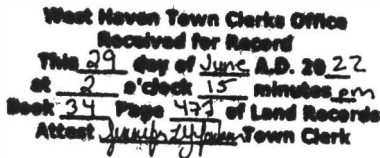 West Haven Town Clerks Office
Received for Record
This 29 day of June A.D. 20 22
at 2 o'clock 15 minutes pm
Book 34 Page 477 of Land Records
Attest Town Clerk